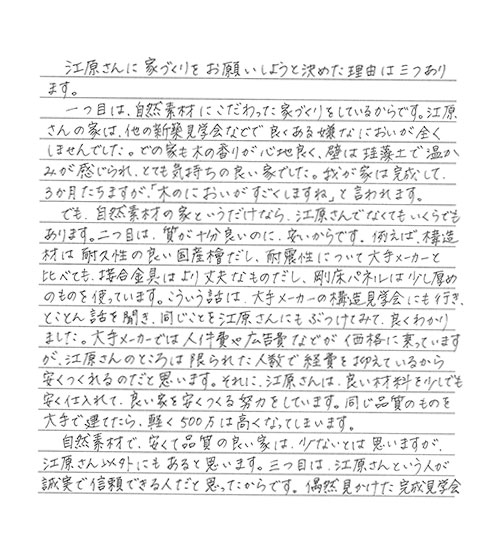 江原さんに家づくりをお願いしようと決めた理由は三つあり
ます。
一つ目は、自然素材にこだわった家づくりをしているからです。江原
さんの家は、他の新築見学会などで良くある嫌なにおいが全く
しませんでした。どの家も木の香りが心地良く、壁は珪藻土で温か
みが感じられ、とても気持ちの良い家でした。我が家は完成して、
3か月たちますが、「木のにおいがすごくしますね」と言われます。
でも、自然素材の家というだけなら、江原さんでなくてもいくらでも
あります。二つ目は、質が十分良いのに、安いからです。例えば、構造
材は耐久性の良い国産檜だし、耐震性について大手メーカーと
比べても、接合金具はより丈夫なものだし、剛床パネルは少し厚め
のものを使っています。こういう話は、大手メーカーの構造見学会にも行き、
とことん話を聞き、同じことを江原さんにもぶつけてみて、良くわかり
ました。大手メーカーでは人件費や広告費などが価格に乗っています
が、江原さんのところは限られた人数で経費を抑えているから
安くつくれるのだと思います。それに、江原さんは、良い材料を少しでも
安く仕入れて、良い家を安くつくる努力をしています。同じ品質のものを
大手で建てたら、軽く500万は高くなってしまいます。
自然素材で、安くて品質の良い家は、少ないとは思いますが、
江原さん以外にもあると思います。三つ目は、江原さんという人が
誠実で信頼できる人だと思ったからです。偶然見かけた完成見学会